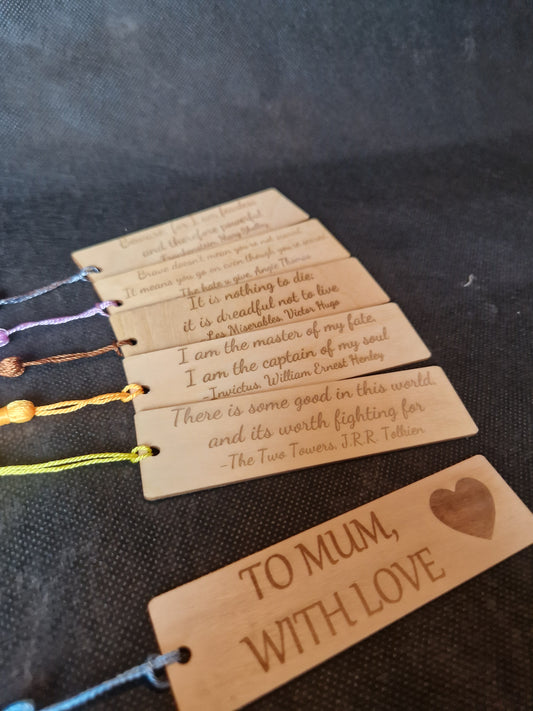 Beware for I am fearless
and therefore powerful
-Frankenstein, Mary Shelley
Brave doesn't mean you're not scared.
It means you go on even though you're scared
-The hate u give, Angie Thomas
It is nothing to die;
it is dreadful not to live
-Les Miserables, Victor Hugo
I am the master of my fate,
I am the captain of my soul
-Invictus, William Ernest Henley
There is some good in this world,
and its worth fighting for
-The Two Towers, J.R.R. Tolkien
TO MUM,
WITH LOVE